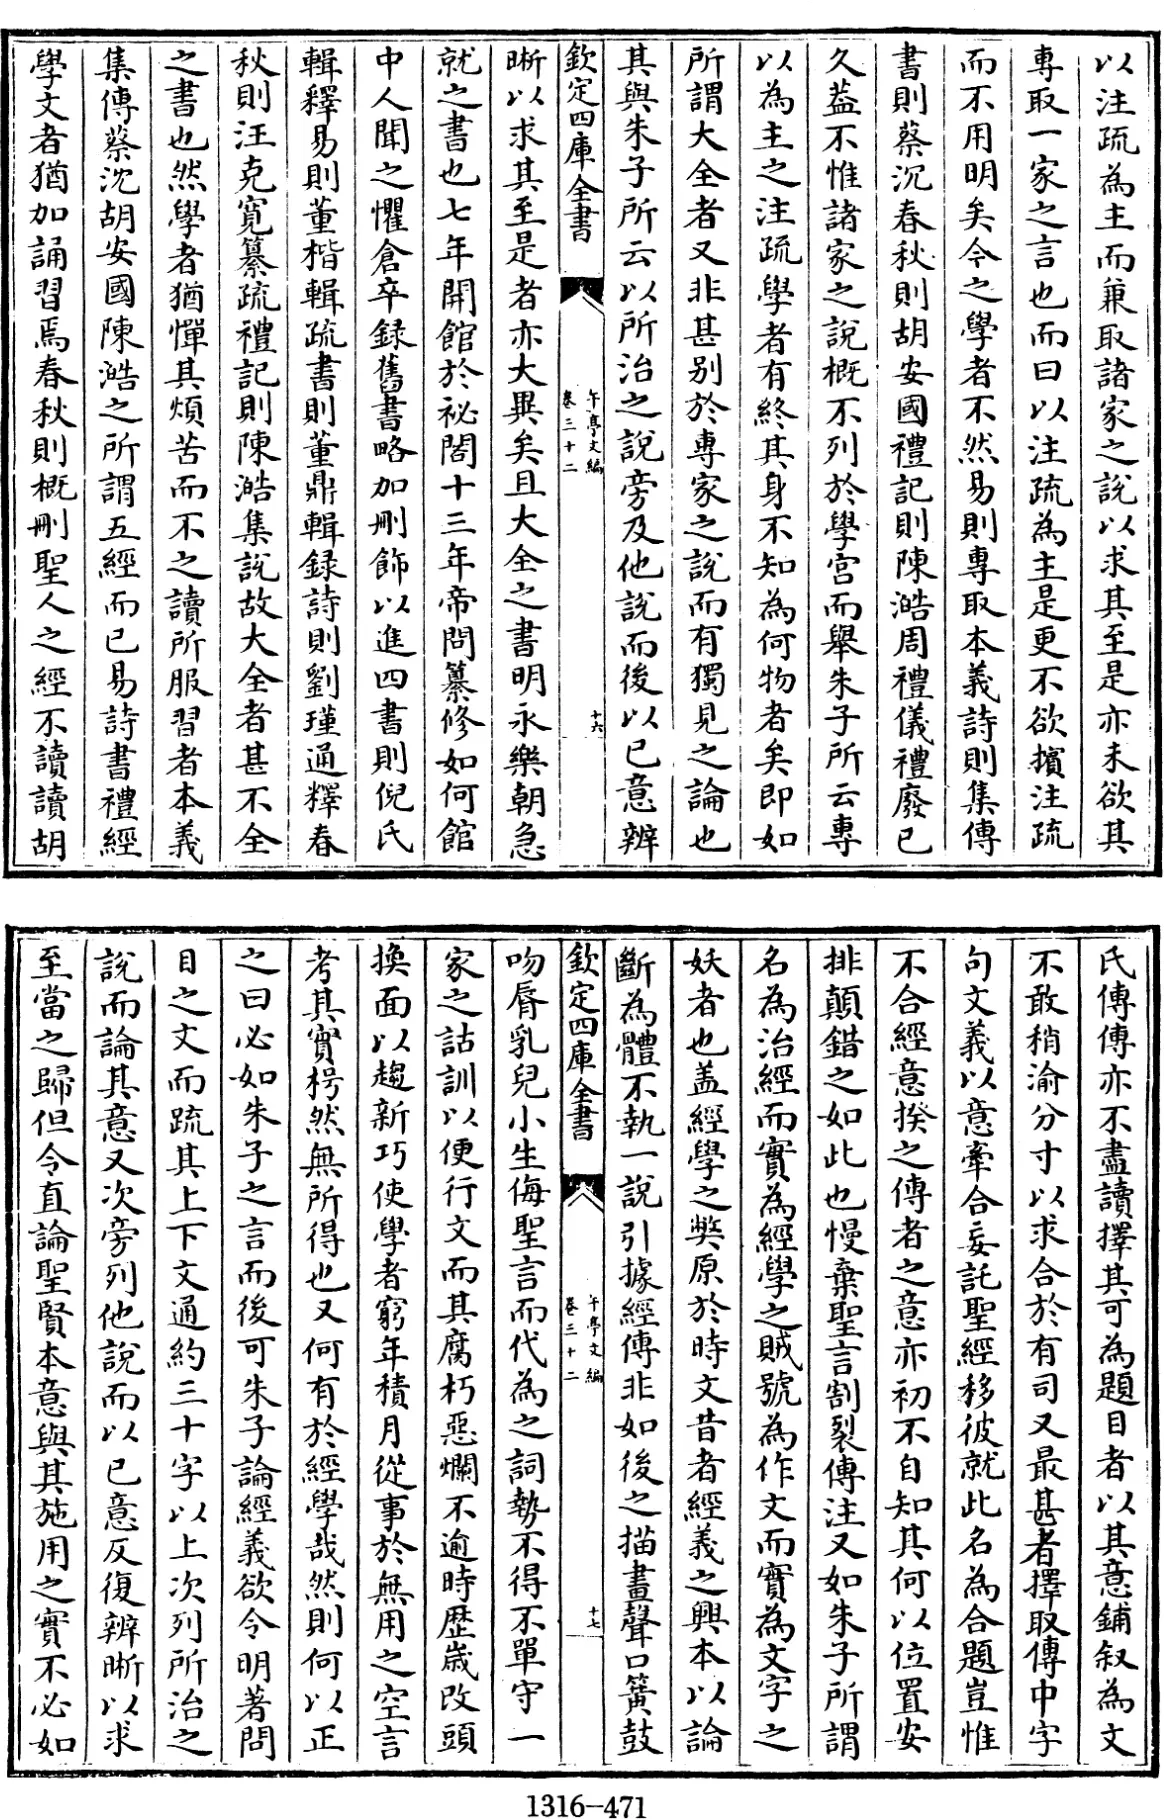 以注疏為主而兼取諸家之說以求其至是亦未欲其
專取一家之言也而曰以注疏為主是更不欲擯注疏
而不用明矣今之學者不然易則專取本義詩則集傳
書則蔡沉春秋則胡安國禮記則陳澔周禮儀禮廢已
久葢不惟諸家之說概不列於學宮而舉朱子所云專
以為主之注疏學者有終其身不知為何物者矣即如
所謂大全者又非甚别於專家之說而有獨見之論也
其與朱子所云以所治之說旁及他說而後以已意辨
欽定四庫全書
午亭文編
卷三十二
十六
晰以求其至是者亦大異矣且大全之書明永樂朝急
就之書也七年開館於祕閣十三年帝問纂修如何館
中人聞之懼倉卒録舊書略加刪飾以進四書則倪氏
輯釋易則董楷輯疏書則董鼎輯録詩則劉瑾通釋春
秋則汪克寛纂疏禮記則陳澔集說故大全者甚不全
之書也然學者猶憚其煩苦而不之讀所服習者本義
集傳蔡沈胡安國陳澔之所謂五經而已易詩書禮經
學文者猶加誦習焉春秋則概刪聖人之經不讀讀胡
氏傳傳亦不盡讀擇其可為題目者以其意鋪叙為文
不敢稍渝分寸以求合於有司又最甚者擇取傳中字
句文義以意牽合妄託聖經移彼就此名為合題豈惟
不合經意揆之傳者之意亦初不自知其何以位置安
排顛錯之如此也慢棄聖言割裂傳注又如朱子所謂
名為治經而實為經學之賊號為作文而實為文字之
妖者也盖經學之獘原於時文昔者經義之興本以論
斷為體不執一說引據經傳非如後之描畫聲口簧鼓
欽定四庫全書
午亭文編
卷三十二
十七
吻脣乳兒小生侮聖言而代為之詞勢不得不單守一
家之詁訓以便行文而其腐朽惡爛不逾時歴歲改頭
換面以趨新巧使學者窮年積月從事於無用之空言
考其實枵然無所得也又何有於經學哉然則何以正
之曰必如朱子之言而後可朱子論經義欲令明著問
目之文而疏其上下文通約三十字以上次列所治之
說而論其意又次旁列他說而以已意反復辨晰以求
至當之歸但令直論聖賢本意與其施用之實不必如
1316-471